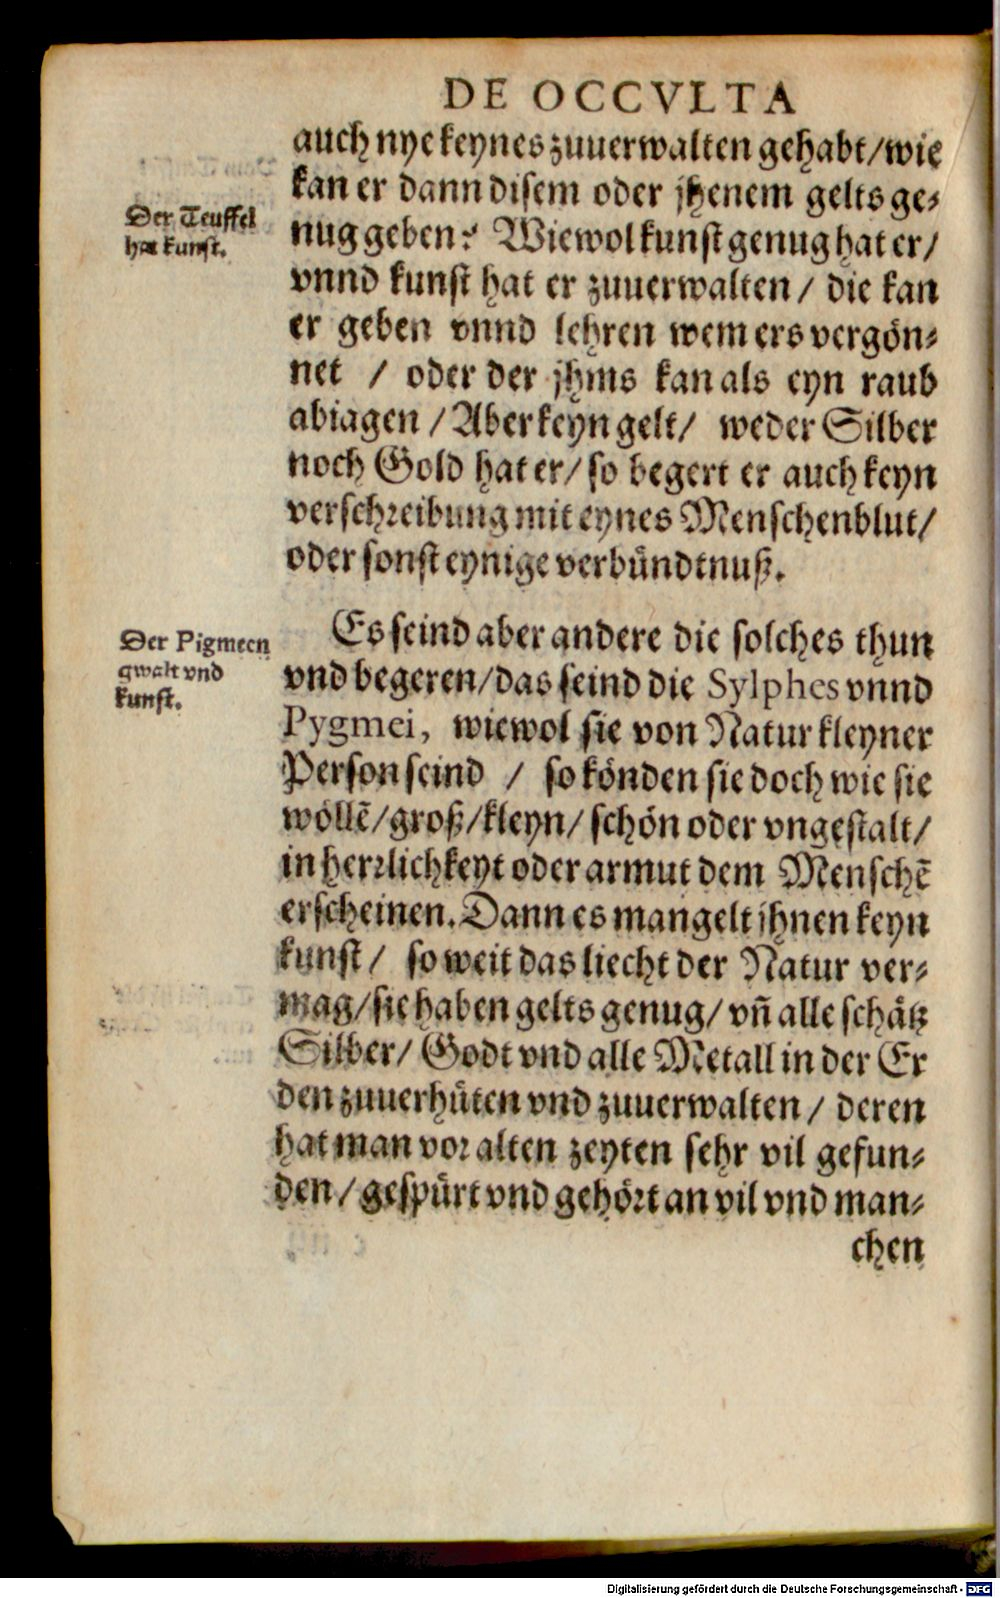 DE OCCVLTA
auch nye keynes zuuerwalten gehabt/wie
kan er dann disem oder jhenem gelts ge-
nug geben? Wiewol kunst genug hat er/
vnnd kunst hat er zuuerwalten/ die kan
er geben vnnd lehren wem ers vergön-
net / oder der jhms kan als eyn raub
abiagen / Aber keyn gelt/ weder Silber
noch Gold hat er/ so begert er auch keyn
verschreibung mit eynes Menschenblut/
oder sonst eynige verbündtnuß.
Der Teuffel
hat kunst.
Es seind aber andere die solches thun
vnd begeren/das seind die Sylphes vnnd
Pygmei, wiewol sie von Natur kleyner
Person seind / so könden sie doch wie sie
wöllē/groß/kleyn/ schön oder vngestalt/
in herrlichkeyt oder armut dem Menschē
erscheinen. Dann es mangelt jhnen keyn
kunst/ so weit das liecht der Natur ver-
mag/sie haben gelts genug/ vñ alle schätz
Silber/ Godt vnd alle Metall in der Er
den zuuerhüten vnd zuuerwalten/ deren
hat man vor alten zeyten sehr vil gefun-
den/gespürt vnd gehört an vil vnd man-
chen
Der Pigmeen
gwalt vnd
kunst.
Digitalisierung gefördert durch die Deutsche Forschungsgemeinschaft - DFG